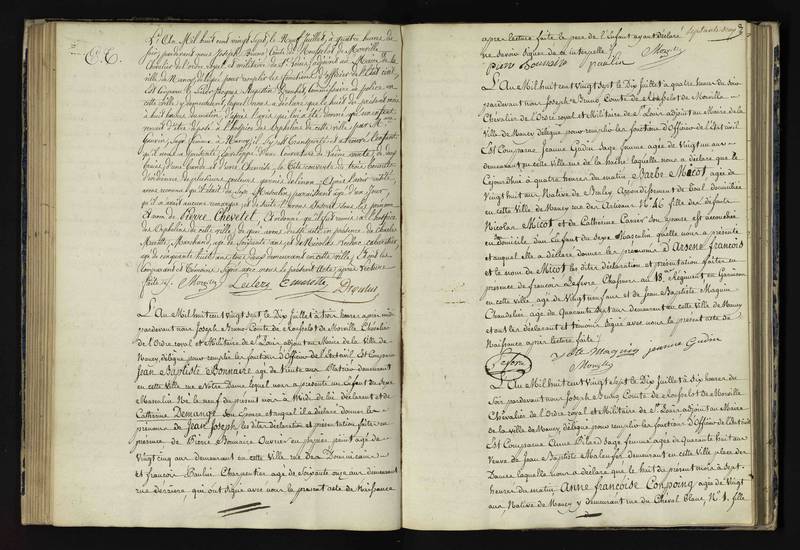 E. T.
L'An Mil huit cent vingt sept, le Neuf Juillet, à quatre heures du
soir, pardevant nous Joseph Bruno Comte de Rousselot de Morville
Chevalier de l'ordre royal et militaire de St Louis, adjoint au Maire de la
ville de Nancy délégué pour remplir les fonctions d'officier de l'Etat civil,
Est comparu le Sieur Augustin commissaire de police en
cette ville y demeurant, lequel nous a déclaré que le huit du présent mois
à huit heures du matin, d'après l'avis qui lui a été donné qu'un enfant
venait d'être déposé à l'hospice des orphelins de cette ville, par
Sage femme à Nancy, il s'y est transporté et a trouvé l'enfant
qu'il nous a présenté enveloppé d'une couverture de laine
d'une chemise, la tête couverte de trois bonnets
nous avons reconnu qu'il était du sexe Masculin, paraissant âgé d'un Jour,
qu'il n'avait aucune marque, et de suite l'avons inscrit sous les prénoms
et nom de Pierre Chevetel, et ordonné qu'il fut remis à l'hospice
des Orphelins de cette ville, de quoi avons dressé acte en présence de Charles
Marotte, Marchand, âgé de soixante ans, et de Nicolas Leclerc, cabaretier
âgé de cinquante huit ans, tous deux demeurant en cette ville, et ont les
Comparant et Témoins signé avec nous le présent Acte, après lecture
faite. Morville Leclerc C marotte
L'An Mil huit cent vingt sept le Dix Juillet à trois heures après midi
pardevant nous Joseph Bruno Comte de Rousselot de Morville Chevalier
de l'Ordre royal et Militaire de St Louis adjoint au Maire de la Ville de
Nancy délégué pour remplir les fonctions d'Officier de l'Etat civil Est Comparu
Jean Baptiste Bonnaire âgé de trente ans Platrier demeurant
en cette Ville rue Notre Dame lequel nous a présenté un Enfant du Sexe
Masculin Né le neuf du présent mois à Midi de lui déclarant et de
Catherine Demange son Epouse et auquel il a déclaré donner les
prénoms de Jean Joseph les dites déclaration et présentation faites en
présence de Pierre Bonnaire Ouvrier en papier peint âgé de
Vingt cinq ans demeurant en cette Ville rue des Dominicains
et françois Paulin Charpentier âgé de Soixante onze ans demeurant
rue derrière, qui ont signé avec nous le présent acte de Naissance
septante cinq
après lecture faite le père de l'Enfant ayant déclaré
ne savoir signer de ce interpellé Morville
Pierre Bonnaire paulin
L'An Mil huit cent Vingt sept le Dix Juillet à quatre heures du soir
pardevant nous Joseph Bruno Comte de Rousselot de Morville
Chevalier de l'Ordre royal et Militaire de St Louis adjoint au Maire de la
Ville de Nancy délégué pour remplir les fonctions d'Officier de l'Etat civil
Est Comparue Jeanne Gudin Sage femme âgée de Vingt un ans
demeurant en cette Ville rue de la hache laquelle nous a déclaré que le
Cejourd'hui à quatre heures du matin Barbe Micot âgée de
Vingt huit ans Native de Arrondissement de Toul domiciliée
en cette Ville de Nancy rue des Artisans No 46 fille des défunts
Nicolas Micot et de Catherine est accouchée
en son domicile d'un Enfant du Sexe Masculin qu'elle nous a présenté
et auquel elle a déclaré donner les prénoms d'Arsene françois
et le nom de Micot les dites déclaration et présentation faites en
présence de françois Lefevre Chasseur au 18e Régiment en Garnison
en cette ville âgé de Vingt neuf ans et de Jean Baptiste Maquin
Chandelier âgé de Quarante sept ans demeurant en cette Ville de Nancy
et ont les déclarant et témoins signé avec nous le présent acte de
Naissance après lecture faite
Maquin jeanne Gudin
Lefevre Morville
L'An Mil huit cent Vingt Sept le Dix Juillet à dix heures du
soir pardevant nous Joseph Bruno Comte de Rousselot de Morville
Chevalier de l'Ordre royal et Militaire de St Louis adjoint au Maire
de la ville de Nancy délégué pour remplir les fonctions d'Officier de l'Etat civil
Est Comparue Anne Pilard Sage femme âgée de Quarante huit ans
Veuve de Jean Baptiste demeurant en cette Ville place des
Dames laquelle nous a déclaré que le huit du présent mois à sept
heures du matin Anne françoise Conpoing âgée de Vingt
ans Native de Nancy y demeurant rue du Cheval blanc, No 1. fille